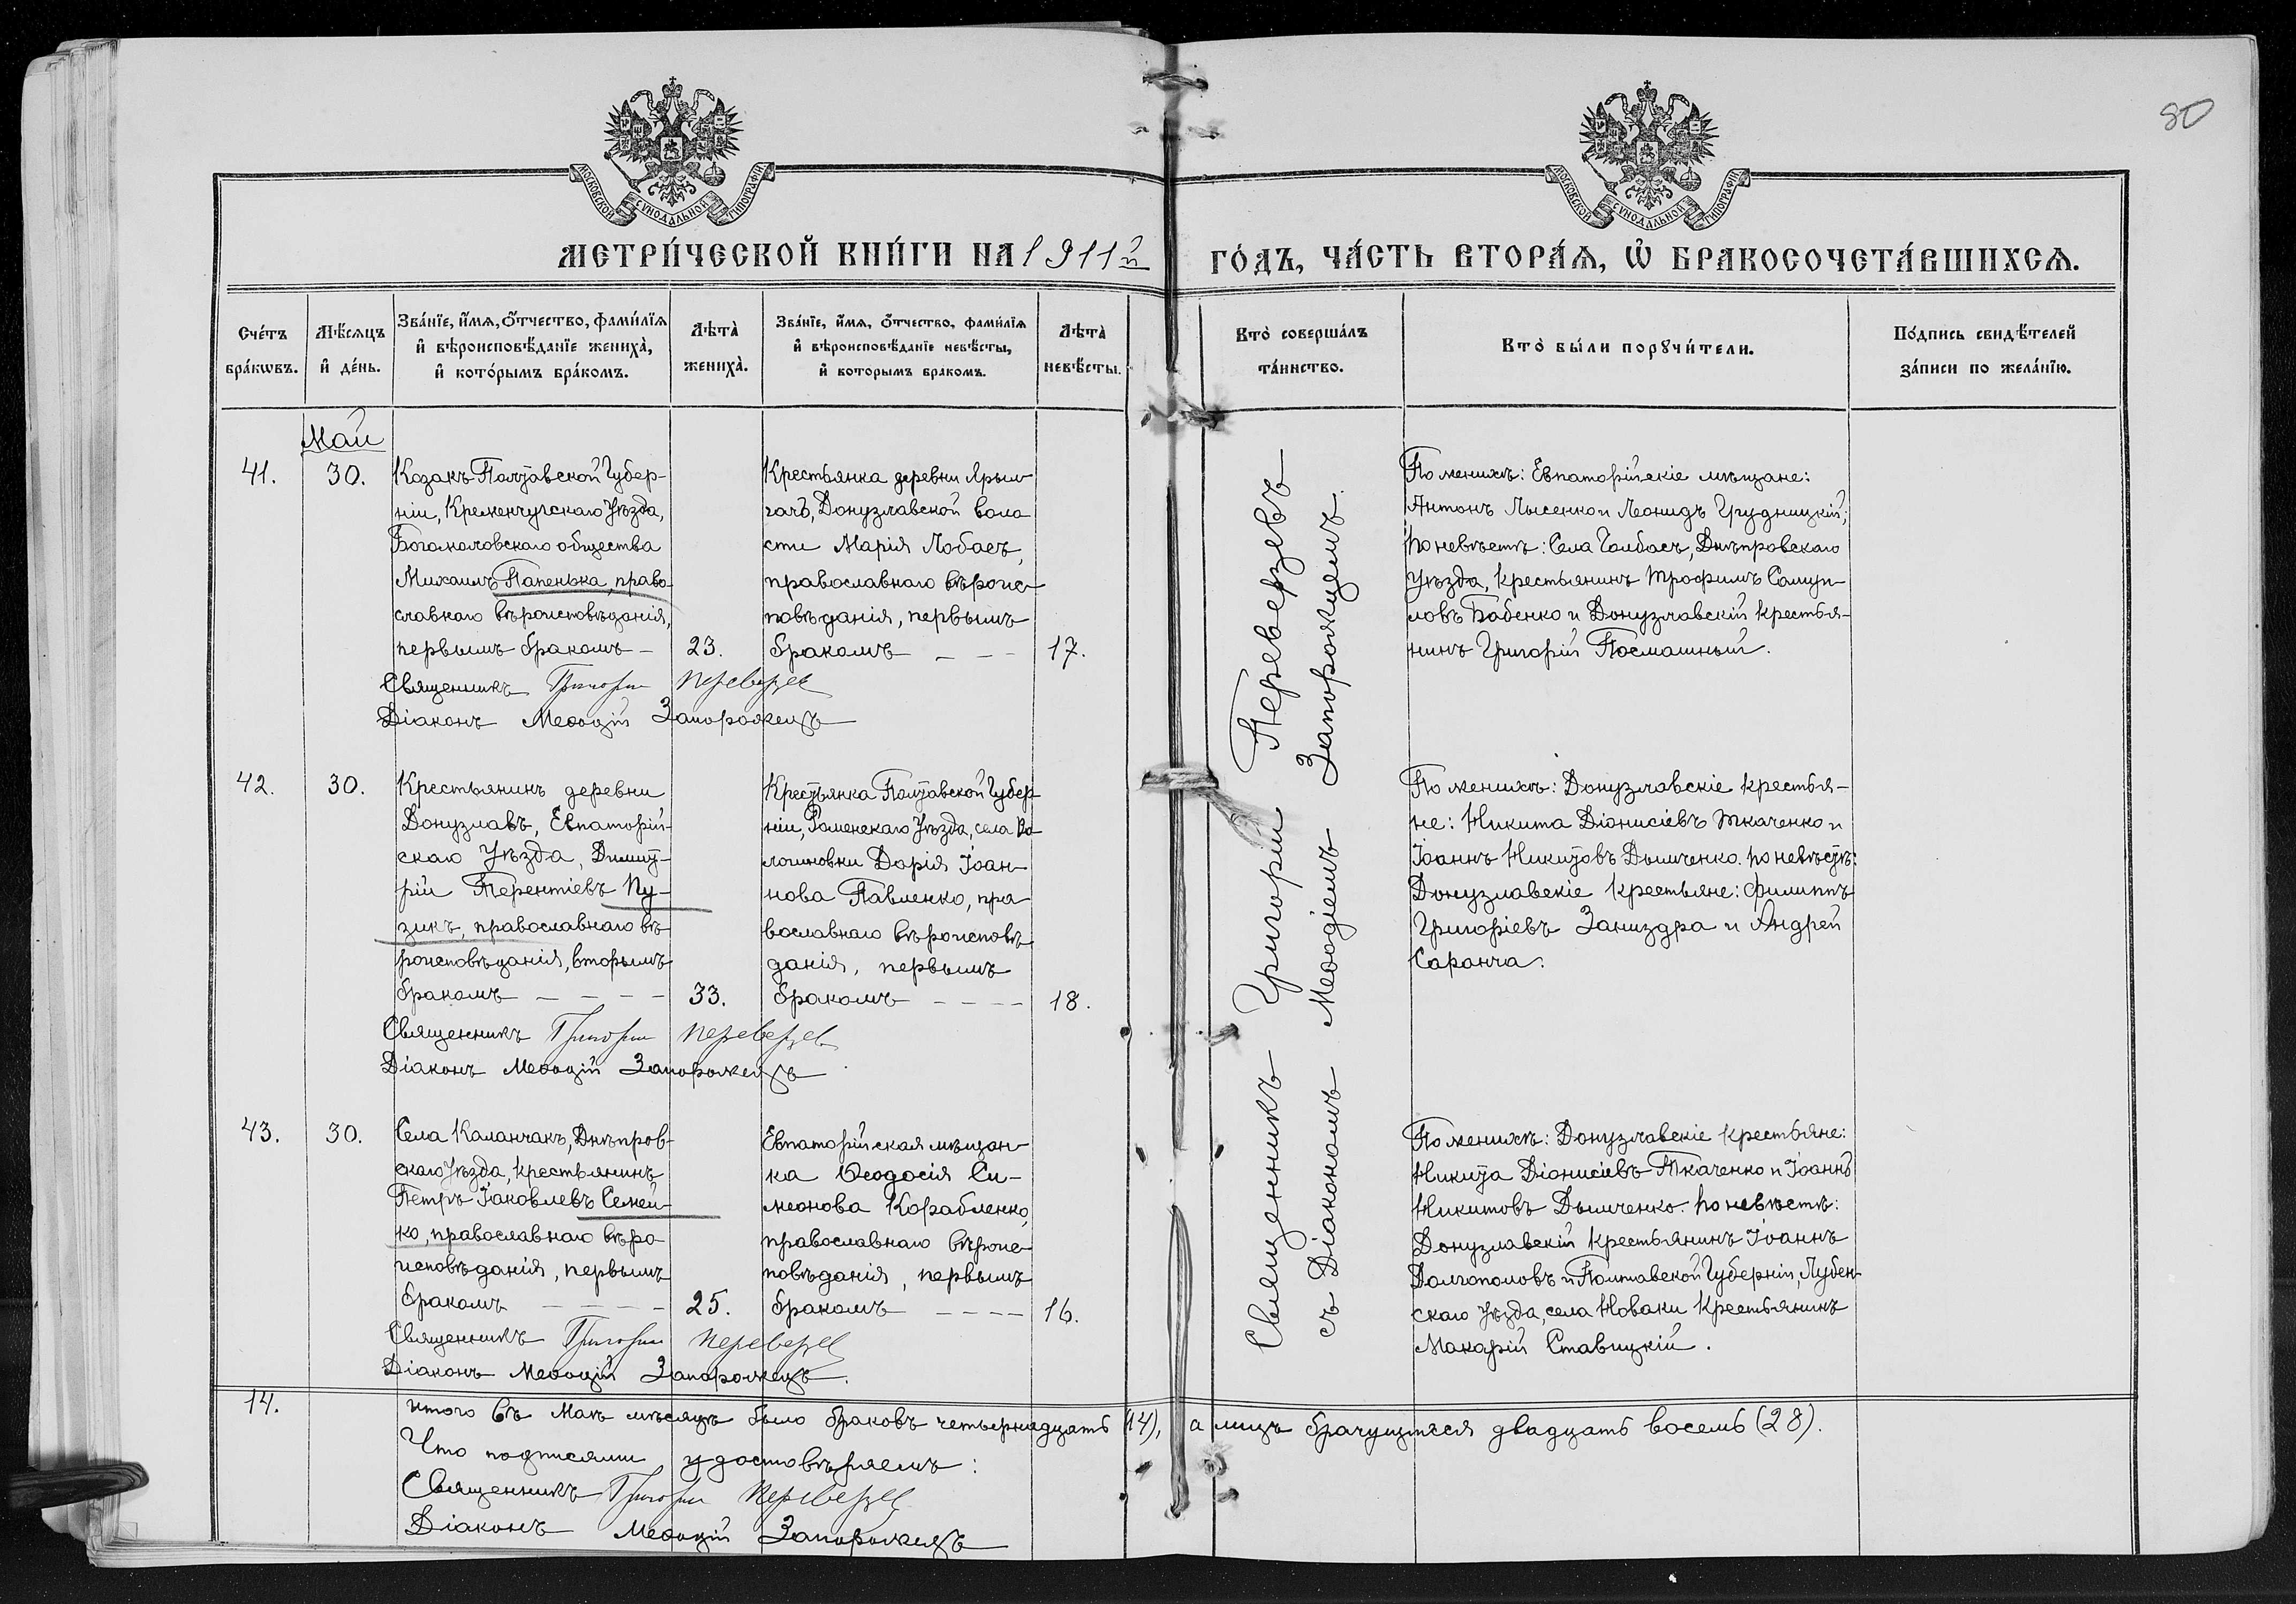 80
МОСКОВСКОЙ СѴНОДАЛЬНОЙ ТИПОГРАФІИ
МОСКОВСКОЙ СѴНОДАЛЬНОЙ ТИПОГРАФІИ
МЕТРИ́ЧЕСКОЙ КНИ́ГИ НА 1911й ГО́ДЪ, ЧА́СТЬ ВТОРА́Ѧ, Ѡ҆ БРАКОСОЧЕТА́ВШИХСѦ.
Сче́тъ бра́кѡвъ.
Мѣ́сяцъ и҆ де́нь.
Зва́нїе, и҆́мѧ, ѻ҆́тчество, фами́лїѧ
и҆ вѣроисповѣ́данїе жениха̀,
и҆ кото́рымъ бра́комъ.
Лѣта̀ жениха̀.
Зва́нїе, и҆́мѧ, ѻ҆́тчество, фами́лїѧ
и҆ вѣроисповѣ́данїе невѣ́сты,
и҆ которымъ бракомъ.
Лѣта̀ невѣ́сты.
Кто̀ соверша́лъ
та́инство.
Кто̀ бы́ли порꙋчи́тели.
По́дпись свидѣ́телей
за́писи по жела́нїю.
Май
41.
30.
Козакъ Полтавской Губер-
ніи, Кременчугскаго Уѣзда,
Богомоловскаго общества
Михаилъ Папенька, право-
славнаго вѣроисповѣданія,
первымъ бракомъ –
23.
Крестьянка деревни Ярыл-
гачъ, Донузлавской воло
сти Марія Лобасъ,
православнаго вѣроис-
повѣданія, первымъ
бракомъ – – –
17.
Священникъ Григорій Переверзевъ
Діаконъ Меѳодій Запорожецъ
По женихѣ: Евпаторійскіе мѣщане:
Антонъ Лысенко и Леонидъ Грудницкій;
по невѣстѣ: Села Чолбасъ, Днѣпровскаго
Уѣзда, крестьянинъ Трофимъ Самуи-
ловъ Бабенко и Донузлавскій крестья-
нинъ Григорій Посмашный.
Священникъ Григорій Переверзевъ
съ Діакономъ Меѳодіемъ Запорожцемъ.
42.
30.
Крестьянинъ деревни
Донузлавъ, Евпаторій-
скаго Уѣзда, Димит-
рій Терентіевъ Пу-
зикъ, православнаго вѣ-
роисповѣданія, вторымъ
бракомъ – – – –
33.
Крестьянка Полтавской Губер-
ніи, Роменскаго Уѣзда, села
Дарія Іоан-
нова Павленко, пра
вославнаго вѣроисповѣ
данія, первымъ
бракомъ – – – –
18.
Священникъ Григорій Переверзевъ
Діаконъ Меѳодій Запорожецъ
По женихѣ: Донузлавскіе крестья-
не: Никита Діонисіевъ Ткаченко и
Іоаннъ Никитовъ Дымченко. по невѣстѣ:
Донузлавскіе крестьяне: Филиппъ
Григоріевъ Заниздра и Андрей
Саранча.
43.
30.
Села Каланчакъ, Днѣпров-
скаго Уѣзда, крестьянинъ
Петръ Іаковлевъ Семей-
ко, православнаго вѣро
исповѣданія, первымъ
бракомъ – – – –
25.
Евпаторійская мѣщан-
ка Ѳеодосія Си-
меонова Корабленко,
православнаго вѣроис-
повѣданія, первымъ
бракомъ – – – –
16.
Священникъ Григорій Переверзевъ
Діаконъ Меѳодій Запорожецъ.
По женихѣ: Донузлавскіе крестьяне:
Никита Діонисіевъ Ткаченко и Іоаннъ
Никитовъ Дымченко. по невѣстѣ:
Донузлавскій крестьянинъ Іоаннъ
Долгополовъ и Полтавской Губерніи, Лубен-
скаго Уѣзда, села Новаки крестьянинъ
Макарій Ставицкій.
14.
Итого въ Маѣ мѣсяцѣ было браковъ четырнадцать (14), а лицъ брачущихся двадцать восемь (28).
Что подписями удостовѣряемъ:
Священникъ Григорій Переверзевъ
Діаконъ Меѳодій Запорожецъ